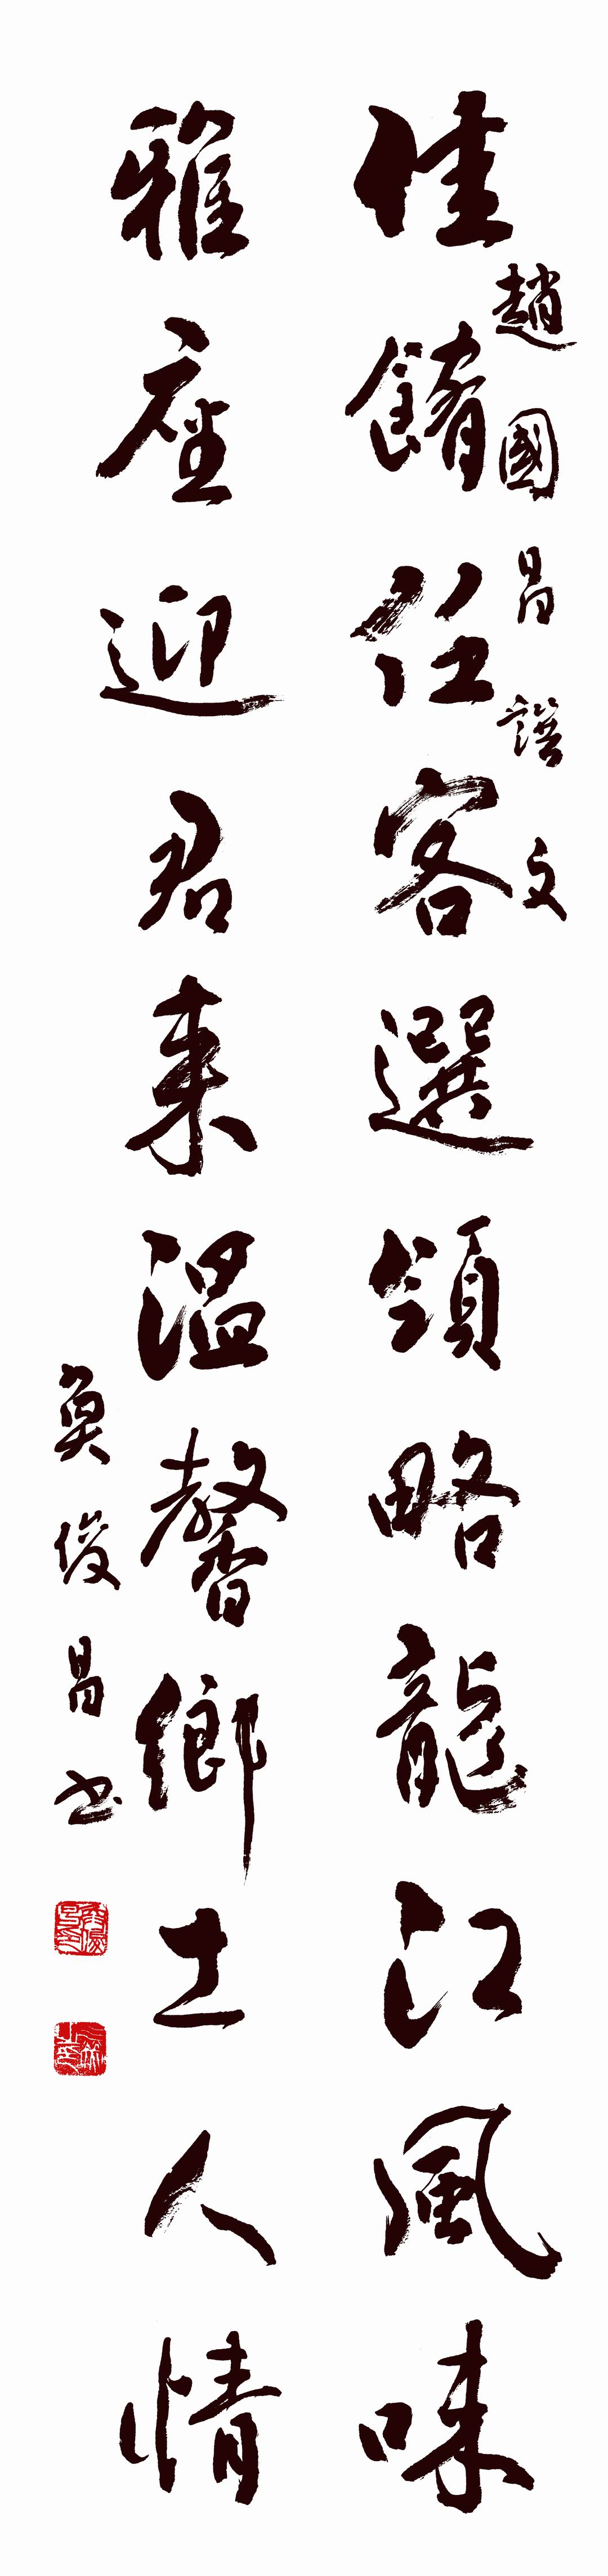 佳餚任客選領略龍江風味
趙國昌譔文
雅座迎君来温馨鄉土人情
奠俊昌书